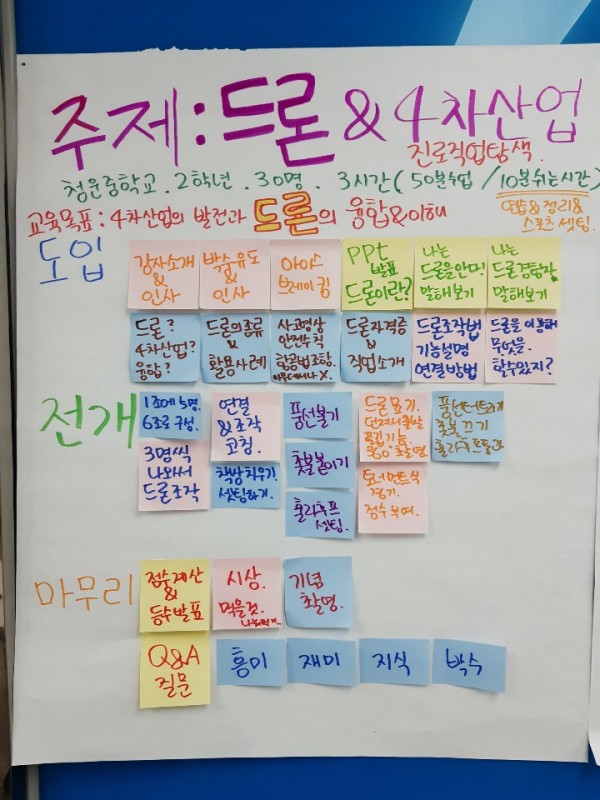 주제:드론 & 4차산업
진로직업탐색.
청운중학교. 2학년. 30명. 3시간(50분수업 / 10분쉬는시간)
연습&정리&
스포츠 셋팅.
교육목표: 4차산업의 발전과 드론의 융합&이해
도입
강사소개
&
인사
박수유도
&
인사
아이스
브레이킹
PPt
발표
드론이란?
나는
드론을안다!
말해보기
나는
드론경험담
말해보기
드론?
4차산업?
융합?
드론의종류
&
활용사례
사고영상
안전수칙
항공법조항.
드론자격증
&
직업소개
드론조작법
기능설명
연결방법
드론을 이용해
무엇을
할수있지?
전개
1조에 5명.
6조로 구성.
연결
&조작
코칭.
풍선불기
드론묘기.
던져서출발
360° 촬영.
풍선터트리기
촛불끄기
훌라후프통과
3명씩
나와서
드론조작
책상치우기.
셋팅하기.
촛불붙이기
토너먼트식
경기.
점수부여.
훌라후프
셋팅.
마무리
점수계산
&
등수발표
시상.
먹을것.
기념
촬영.
Q&A
질문
흥미
재미
지식
박수